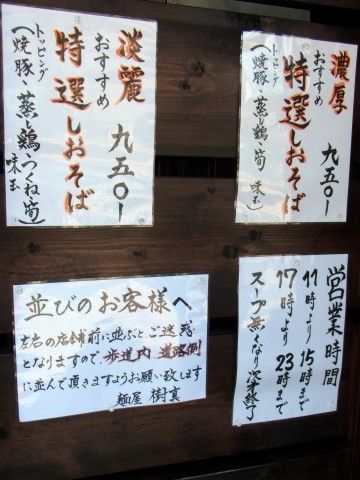 淡麗 九五〇ー
おすすめ
特選しおそば
トッピング
(焼豚・蒸し鶏・つくね・筍)
味玉
濃厚 九五〇ー
おすすめ
特選しおそば
トッピング
(焼豚・蒸し鶏・筍 味玉)
並びのお客様へ
左右の店舗前に並ぶとご迷惑
となりますので、歩道内 道路側
に並んで頂きますようお願い致します
麺屋 樹真
営業時間
11時より15時まで
17時より23時まで
スープ無くなり次第終了